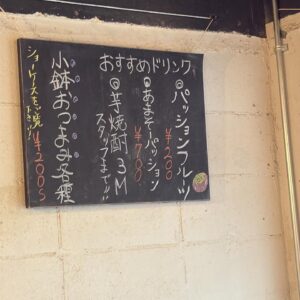 おすすめドリンク
◎パッションフルーツ
¥200
◎あまそーパッション
¥700
◎芋焼酎3M
スタッフまで!!
小鉢おつまみ各種
¥200S
ショーケースを覧